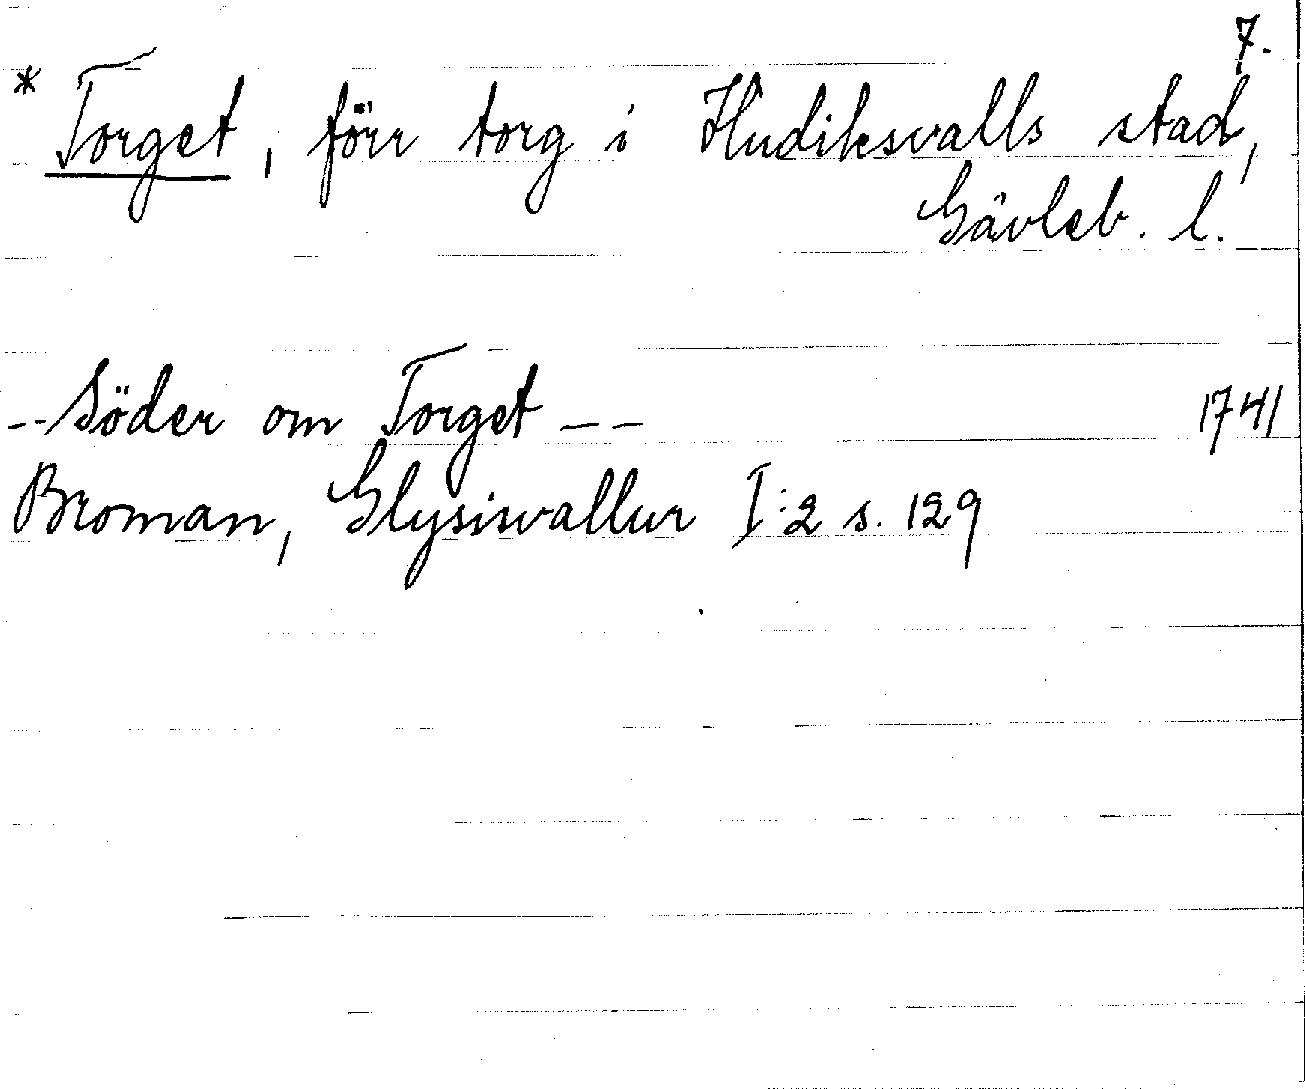 7.
* Torget, förr torg i Hudiksvalls stad,
Gävleb. l.
-- Söder om Torget -- 1741
Broman, Glysisvallur I:2 s. 129